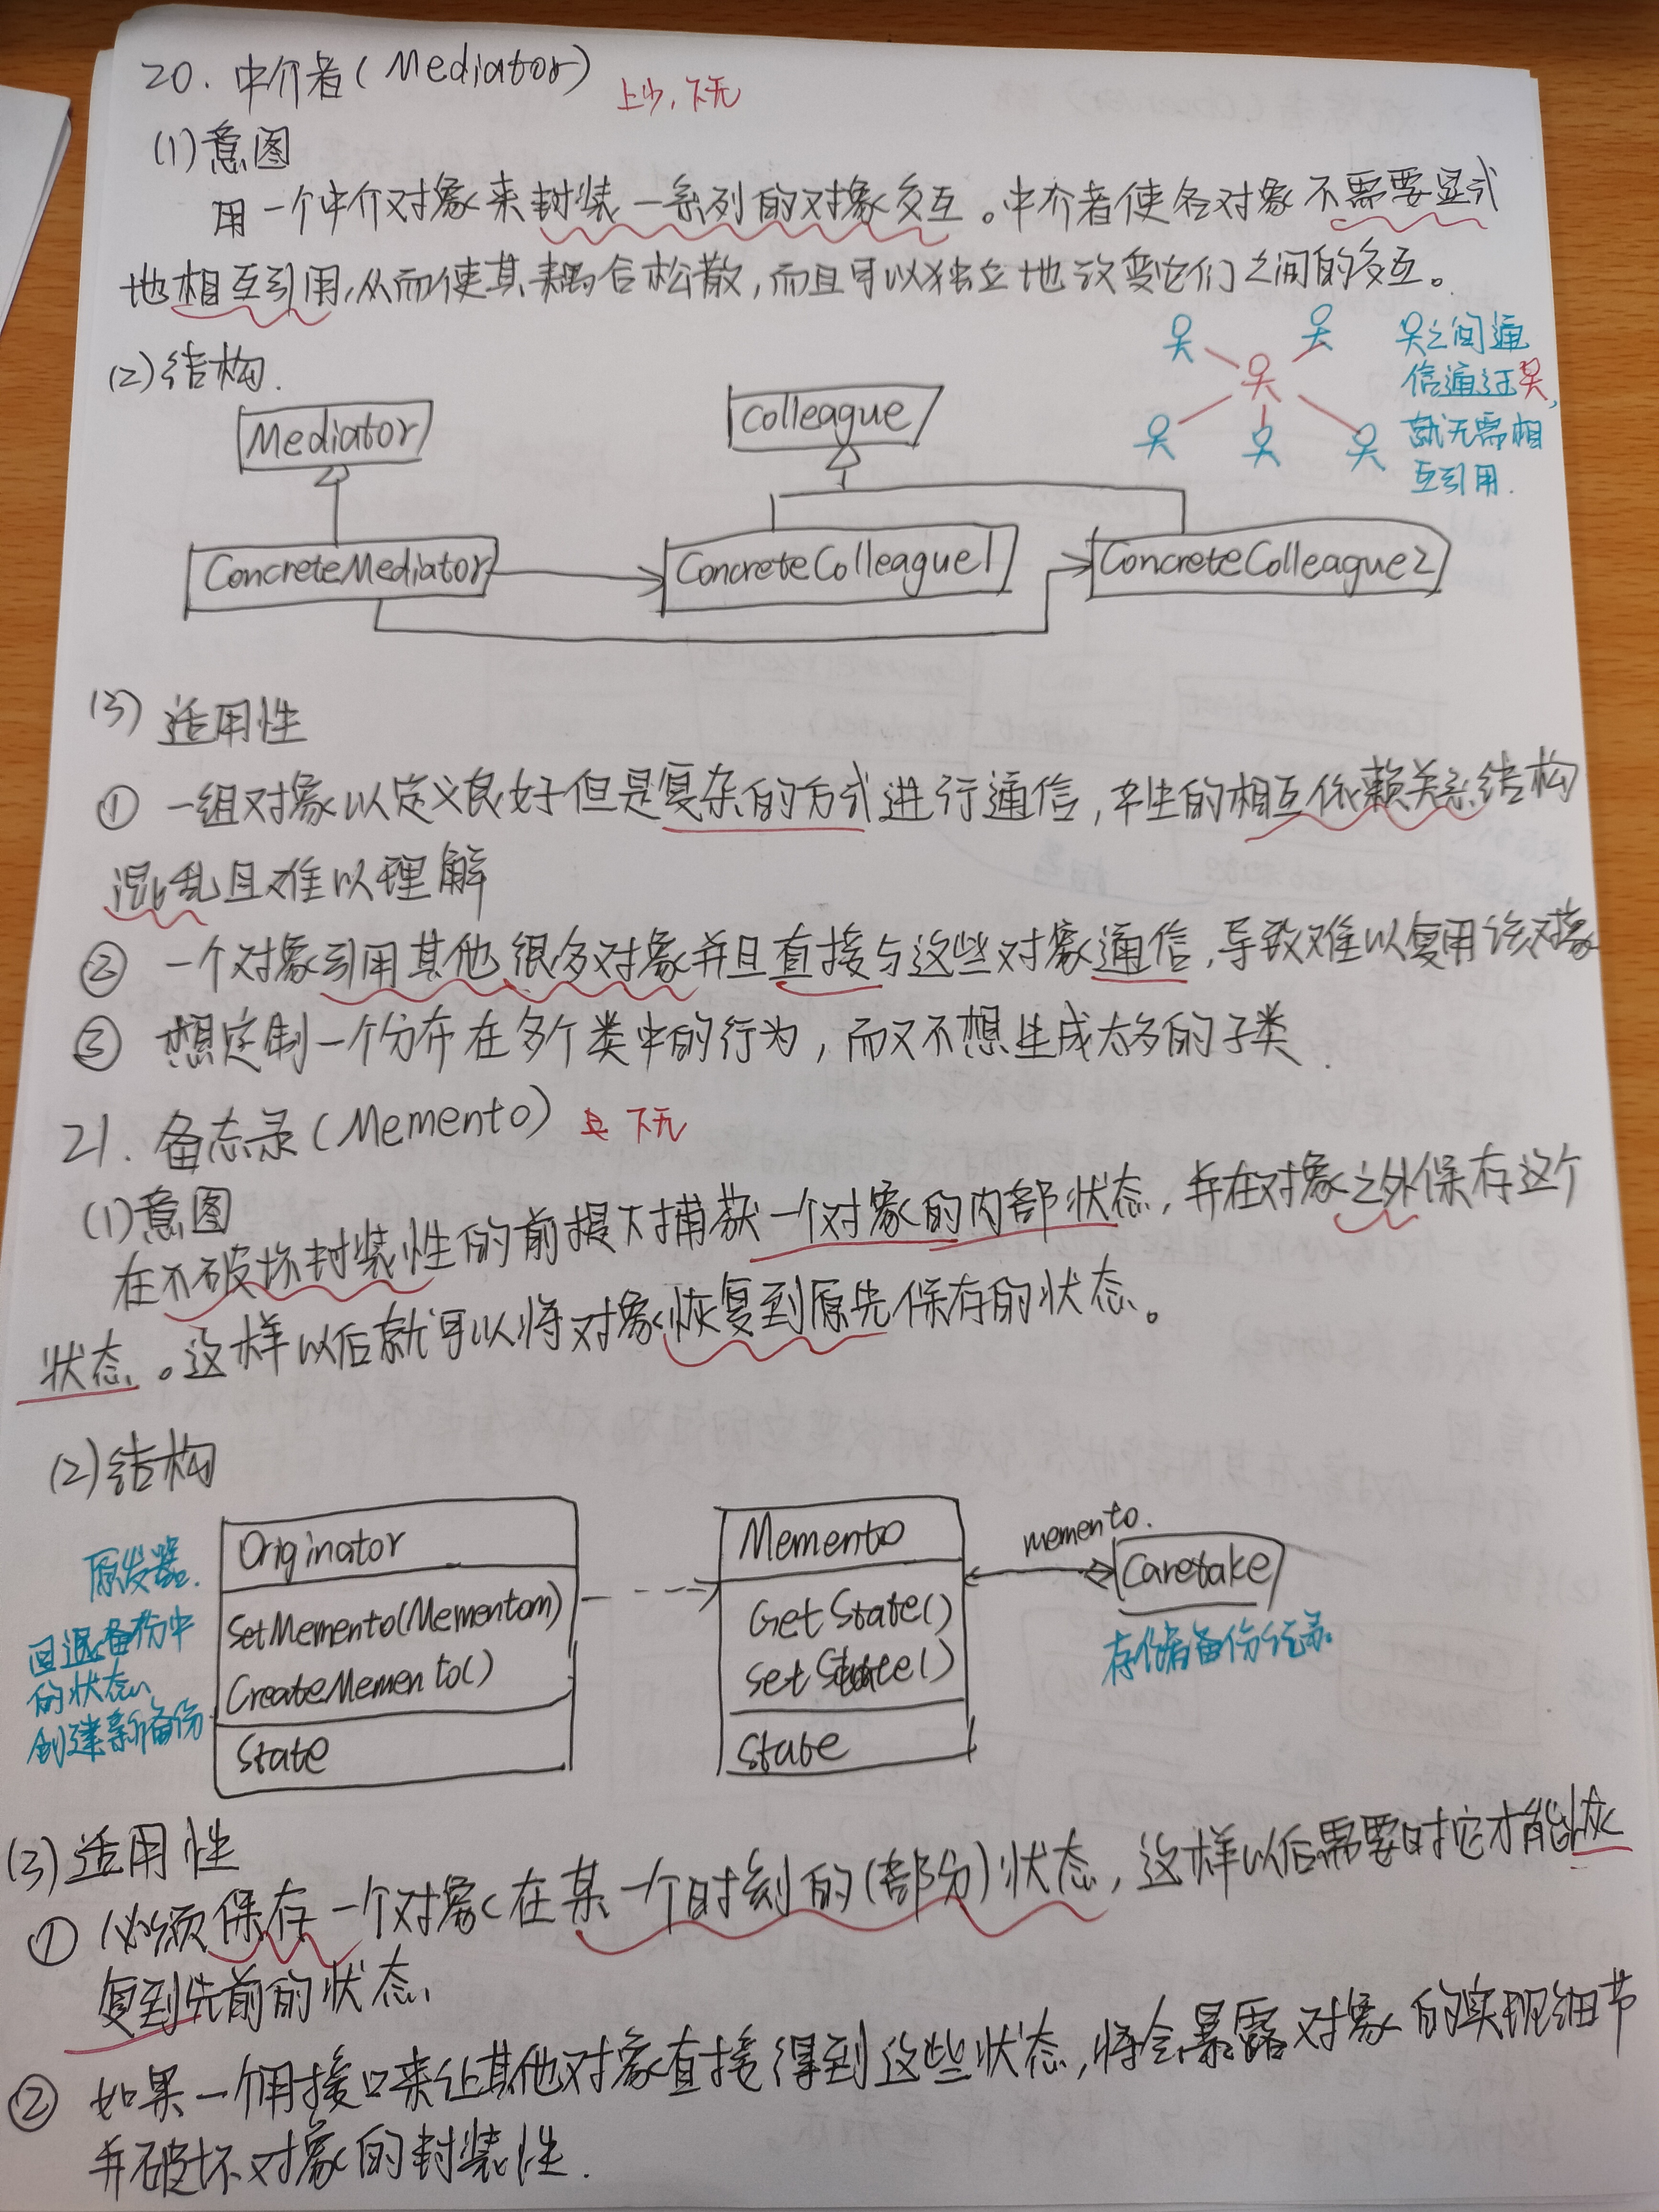 20. 中介者(Mediator) 上少, 下无
(1)意图
用一个中介对象来封装一系列的对象交互。中介者使各对象不需要显式
地相互引用,从而使其耦合松散,而且可以独立地改变它们之间的交互。
(2)结构.
之间通
信通过
就无需相
互引用.
Mediator
Colleague
ConcreteMediator
ConcreteColleague1
ConcreteColleague2
(3) 适用性
① 一组对象以定义良好但是复杂的方式进行通信,产生的相互依赖关系结构
混乱且难以理解
② 一个对象引用其他很多对象并且直接与这些对象通信,导致难以复用该对象
③ 想定制一个分布在多个类中的行为,而又不想生成太多的子类.
21. 备忘录(Memento) 下无
(1)意图
在不破坏封装性的前提下捕获一个对象的内部状态,并在对象之外保存这个
状态。这样以后就可以将对象恢复到原先保存的状态。
(2)结构
原发器.
回退备份中
的状态、
创建新备份
Originator
SetMemento(Mementom)
CreateMemento()
State
Memento
GetState()
SetState()
State
memento.
Caretake
存储着备份记录。
(3)适用性
① 必须保存一个对象在某一个时刻的(部分)状态,这样以后需要时它才能恢
复到先前的状态.
② 如果一个用接口来让其他对象直接得到这些状态,将会暴露对象的实现细节
并破坏对象的封装性.